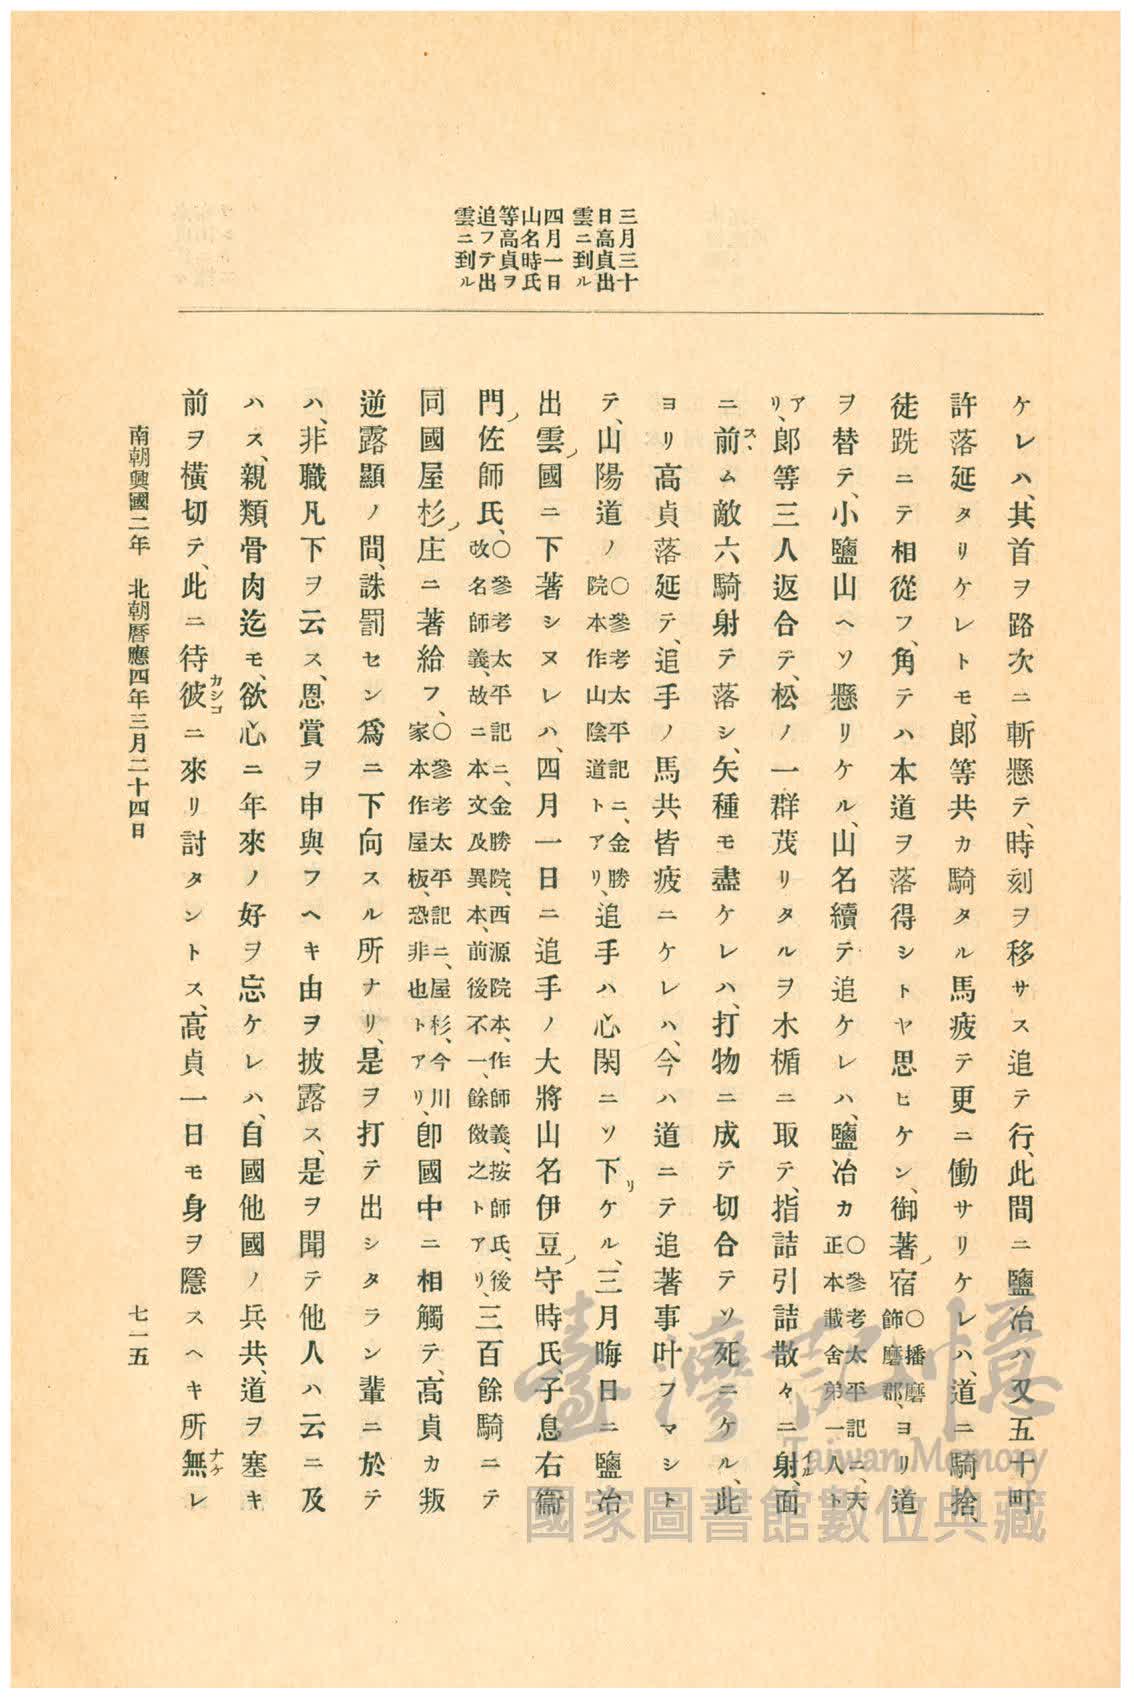 三月三十
日高貞出
雲ニ到ル
四月一日
山名時氏
等高貞ヲ
追フテ出
雲ニ到ル
ケレハ、其首ヲ路次ニ斬懸テ、時刻ヲ移サス追テ行、此間ニ鹽冶ハ又五十町
許落延タリケレトモ、郞等共カ騎タル馬疲テ更ニ働サリケレハ、道ニ騎捨、
徒跣ニテ相從フ、角テハ本道ヲ落得シトヤ思ヒケン、御著ノ宿〇播磨飾磨郡、ヨリ道
ヲ替テ、小鹽山ヘソ懸リケル、山名續テ追ケレハ、鹽冶カ〇參考太平記ニ、天正本載舍弟一人ト
アリ、郞等三人返合テ、松ノ一群茂リタルヲ木楯ニ取テ、指詰引詰散々ニ射、面
ニ前ス、ム敵六騎射テ落シ、矢種モ盡ケレハ、打物ニ成テ切合テソ死ニケル、此
ヨリ高貞落延テ、追手ノ馬共皆疲ニケレハ、今ハ道ニテ追著事叶フマシト
テ、山陽道ノ〇參考太平記ニ、金勝院本作山陰道トアリ、追手ハ心閑ニソ下リケル、三月晦日ニ鹽冶
出雲ノ國ニ下著シヌレハ、四月一日ニ追手ノ大將山名伊豆ノ守時氏子息右衞
門ノ佐師氏、〇參考太平記ニ、金勝院、西源院本、作師義、按師氏、後改名師義、故ニ本文及異本、前後不一、餘傚之トアリ、三百餘騎ニテ
同國屋杉ノ庄ニ著給フ、〇參考太平記ニ、屋杉、今川家本作屋板、恐非也トアリ、卽國中ニ相觸テ、高貞カ叛
逆露顯ノ間、誅罰セン爲ニ下向スル所ナリ、是ヲ打テ出シタラン輩ニ於テ
ハ、非職凡下ヲ云ス、恩賞ヲ申與フヘキ由ヲ披露ス、是ヲ聞テ他人ハ云ニ及
ハス、親類骨肉迄モ、欲心ニ年來ノ好ヲ忘ケレハ、自國他國ノ兵共、道ヲ塞キ
前ヲ橫切テ、此ニ待彼カシコニ來リ討タントス、高貞一日モ身ヲ隱スヘキ所無ナケレ
南朝興國二年　北朝曆應四年三月二十四日
七一五
臺灣記憶
Taiwan Memory
國家圖書館數位典藏